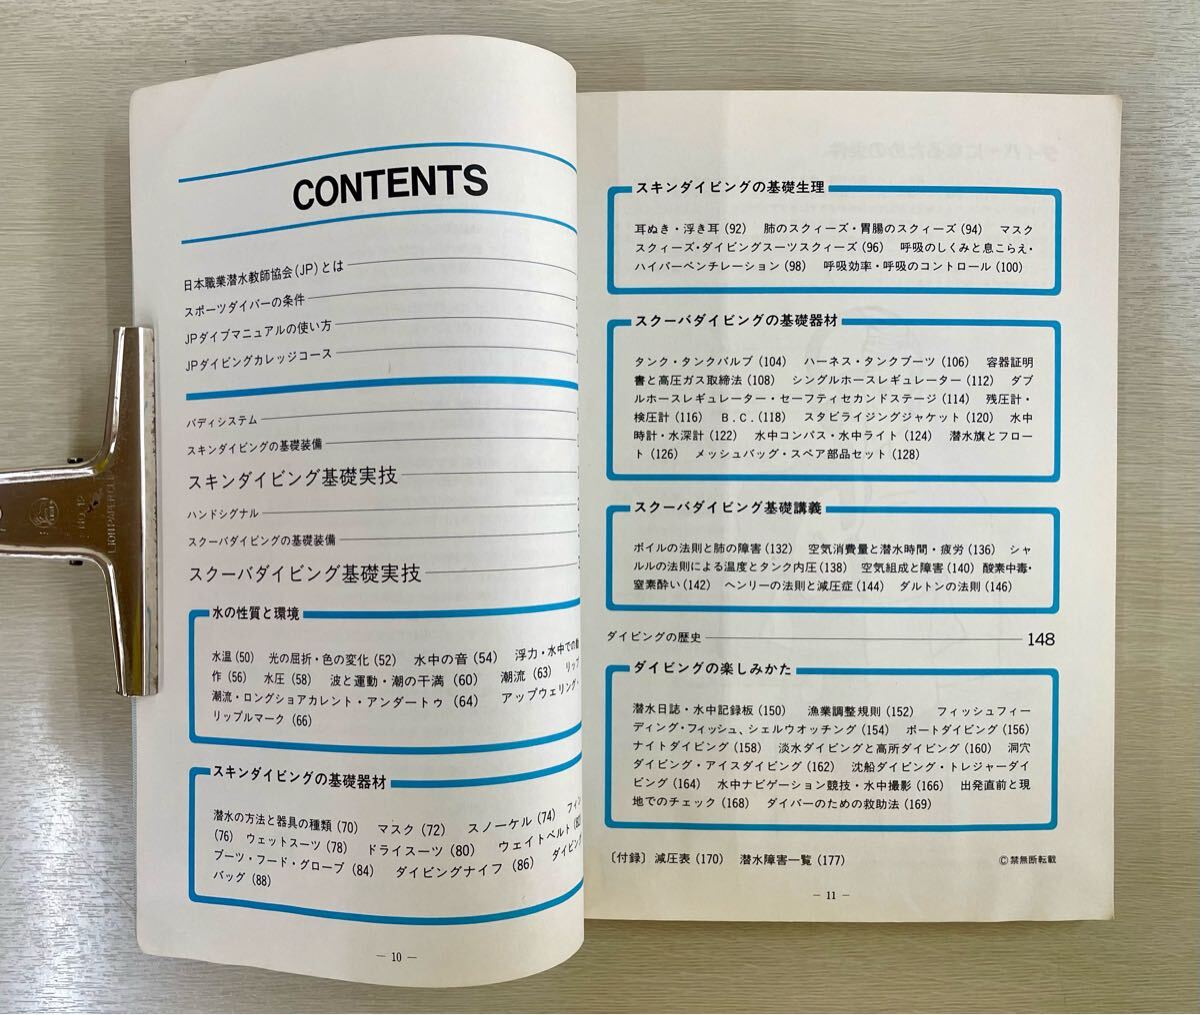 CONTENTS
日本職業潜水教師協会(JP)とは
スポーツダイバーの条件
JPダイブマニュアルの使い方
JPダイビングカレッジコース
バディシステム
スキンダイビングの基礎装備
スキンダイビング基礎実技
ハンドシグナル
スクーバダイビングの基礎装備
スクーバダイビング基礎実技
水の性質と環境
水温(50) 光の屈折・色の変化(52) 水中の音(54) 浮力・水中での
作(56) 水圧(58) 波と運動・潮の干満(60) 潮流(63) リップ
潮流・ロングショアカレント・アンダートゥ(64) アップウェリング・
リップルマーク(66)
スキンダイビングの基礎器材
潜水の方法と器具の種類(70) マスク(72) スノーケル(74) フィン
(76) ウェットスーツ(78) ドライスーツ(80) ウェイトベルト(82)
ブーツ・フード・グローブ(84) ダイビングナイフ(86) ダイビング
バッグ(88)
— 10 —
スキンダイビングの基礎生理
耳ぬき・浮き耳(92) 肺のスクィーズ・胃腸のスクィーズ(94) マスク
スクィーズ・ダイビングスーツスクィーズ(96) 呼吸のしくみと息こらえ・
ハイパーベンチレーション(98) 呼吸効率・呼吸のコントロール(100)
スクーバダイビングの基礎器材
タンク・タンクバルブ(104) ハーネス・タンクブーツ(106) 容器証明
書と高圧ガス取締法(108) シングルホースレギュレーター(112) ダブ
ルホースレギュレーター・セーフティセカンドステージ(114) 残圧計・
検圧計(116) B.C.(118) スタビライジングジャケット(120) 水中
時計・水深計(122) 水中コンパス・水中ライト(124) 潜水旗とフロー
ト(126) メッシュバッグ・スペア部品セット(128)
スクーバダイビング基礎講義
ボイルの法則と肺の障害(132) 空気消費量と潜水時間・疲労(136) シャ
ルルの法則による温度とタンク内圧(138) 空気組成と障害(140) 酸素中毒・
窒素酔い(142) ヘンリーの法則と減圧症(144) ダルトンの法則(146)
ダイビングの歴史 148
ダイビングの楽しみかた
潜水日誌・水中記録板(150) 漁業調整規則(152) フィッシュフィー
ディング・フィッシュ、シェルウオッチング(154) ボートダイビング(156)
ナイトダイビング(158) 淡水ダイビングと高所ダイビング(160) 洞穴
ダイビング・アイスダイビング(162) 沈船ダイビング・トレジャーダイ
ビング(164) 水中ナビゲーション競技・水中撮影(166) 出発直前と現
地でのチェック(168) ダイバーのための救助法(169)
〔付録〕減圧表(170) 潜水障害一覧(177) ©禁無断転載
— 11 —